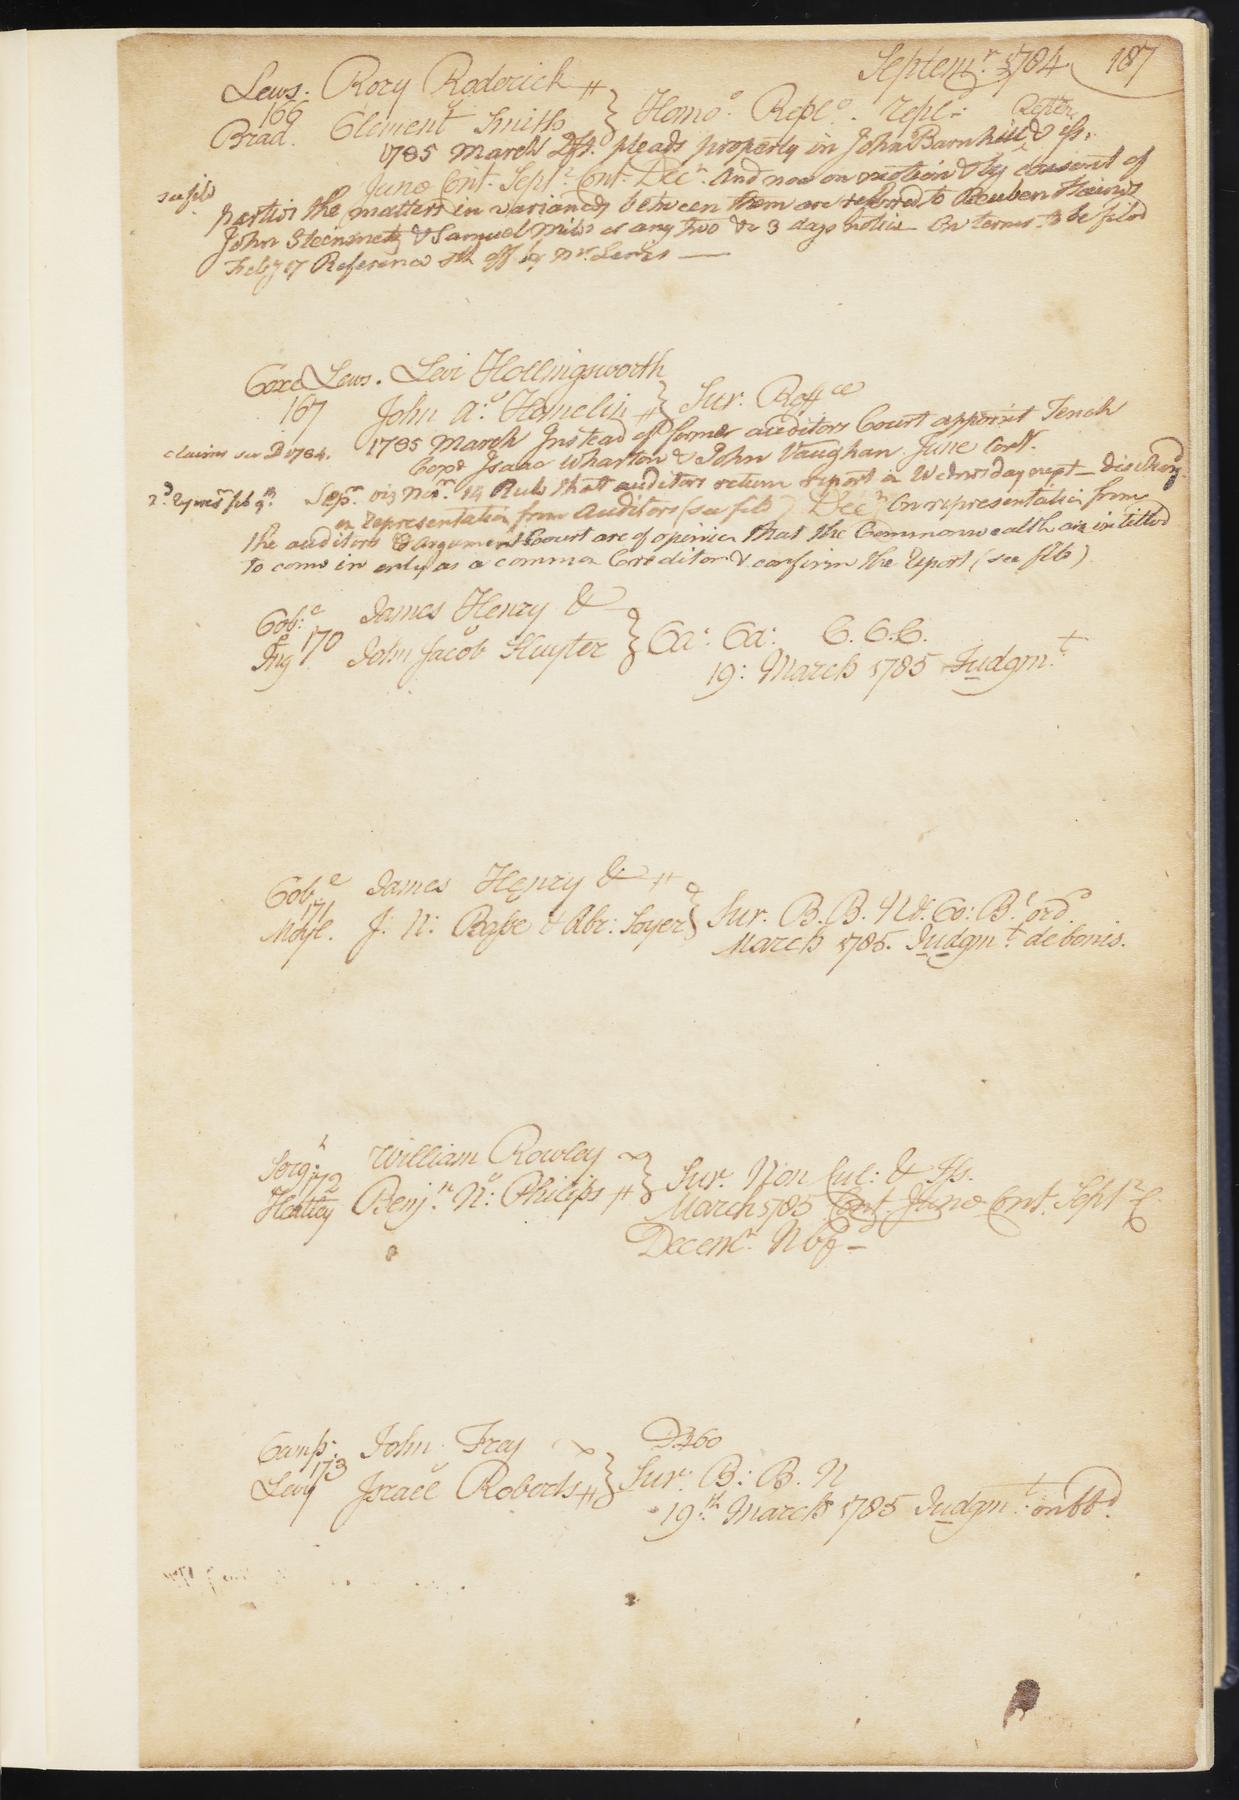 Septemr. 1784 187
Lews. Rory Roderick
166 }Homo. Repl.o repl.
Brad. Clement Smith
1785 March Dft. pleads property in John Barnhill & iss.
see file June Cont. Septr. Cont. Decr. And now on motion & by consent of
parties the matters in variance between them are referred to Reuben Haines
John Steinmetz & Samuel Miles or any two &c 3 days notice On terms to be filed
Feby 87 Reference sth off by Mr. Lewis
Coxe Lews. Levi Hollingsworth
167 John A. Hamelin } Sur. Roffce
claims see D 1784. 1785 March Instead of former auditors Court appoint Tench
Coxe Isaac Wharton & John Vaughan. June Cont.
Sepr. viz Novr. 14 Rule that auditors return report on Wednesday next – dischargd
on representation from Auditors (see file) Decr. On representation from
the auditors & argument Court are of opinion that the Commonwealth are intitled
to come in only as a common Creditor & confirm the report (see file)
Cob.e James Henry &
Ing 170 John Jacob Kuyter } Ca: Ca: C.C.C.
19: March 1785 Judgm.t
Cob.e James Henry &
171
Moyl. J. N: Babe & Abr: Soyer } Sur. B.B. N &. Co: B.t ord.
March 1785. Judgm.t de bonis.
Serg.t William Rowley
172
Heatley Benj.n N: Philips } Sur. Non Cul: & Iss.
March 1785 Cont. June Cont. Septr C.
Decemr.
Camp. John Fray D360
173
Levy Israel Roberts } Sur. B: B. N
19.th March 1785 Judgm.t on bd.